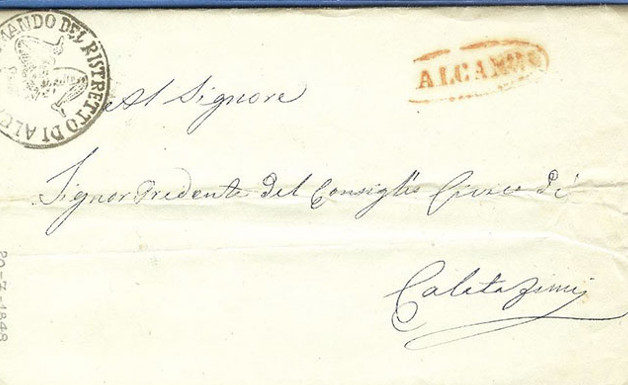 MANDO DEL RISTRETTO DI ALC
ALCAMO
Al Signore
Signor Predente del Consiglio Civico di
Calatafimi
20-7-1848